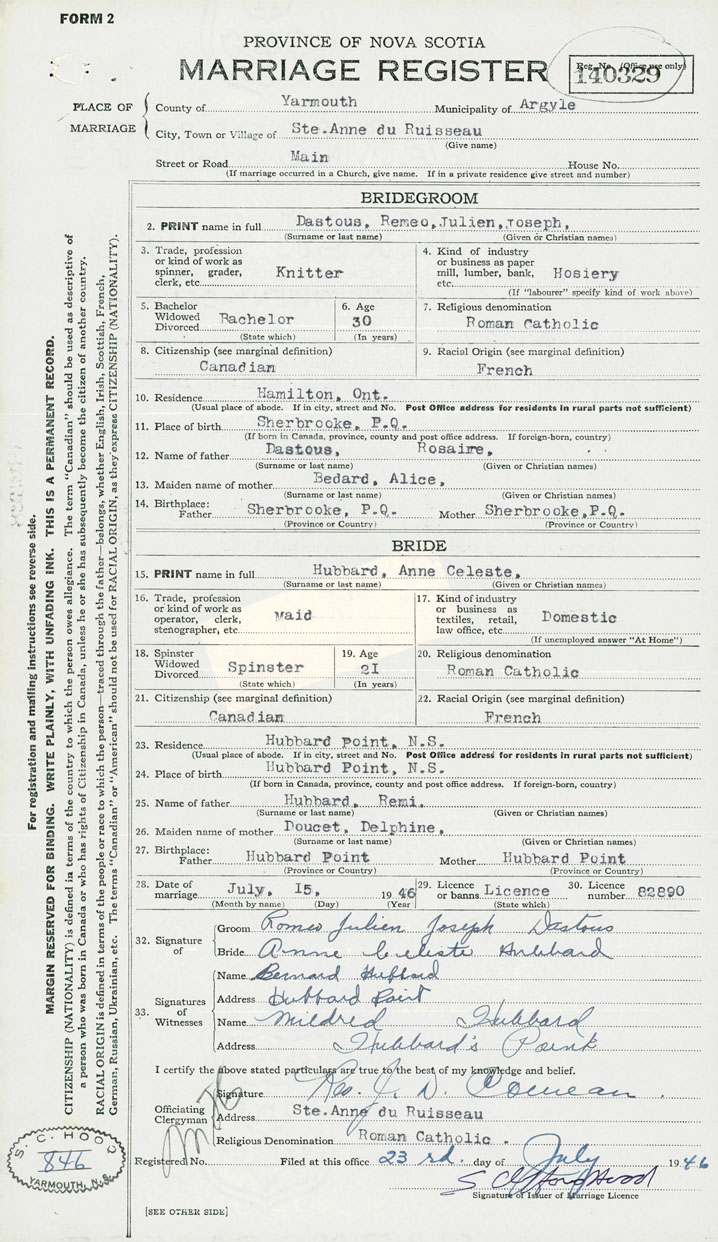 FORM 2
PROVINCE OF NOVA SCOTIA
MARRIAGE REGISTER
Reg. No. (Office use only)
140329
PLACE OF MARRIAGE
County of Yarmouth Municipality of Argyle
City, Town or Village of Ste.Anne du Ruisseau
(Give name)
Street or Road Main House No.
(If marriage occurred in a Church, give name. If in a private residence give street and number)
BRIDEGROOM
2. PRINT name in full Dastous, Remeo,Julien,Joseph,
(Surname or last name) (Given or Christian names)
3. Trade, profession or kind of work as spinner, grader, clerk, etc. Knitter
4. Kind of industry or business as paper mill, lumber, bank, etc. Hosiery
(If "labourer" specify kind of work above)
5. Bachelor Widowed Divorced Bachelor
(State which)
6. Age 30
(In years)
7. Religious denomination
Roman Catholic
8. Citizenship (see marginal definition)
Canadian
9. Racial Origin (see marginal definition)
French
10. Residence Hamilton, Ont.
(Usual place of abode. If in city, street and No. Post Office address for residents in rural parts not sufficient)
11. Place of birth Sherbrooke, P.Q.
(If born in Canada, province, county and post office address. If foreign-born, country)
12. Name of father Dastous, Rosaire,
(Surname or last name) (Given or Christian names)
13. Maiden name of mother Bedard, Alice,
(Surname or last name) (Given or Christian names)
14. Birthplace: Father Sherbrooke, P.Q. Mother Sherbrooke,P.Q.
(Province or Country) (Province or Country)
BRIDE
15. PRINT name in full Hubbard, Anne Celeste,
(Surname or last name) (Given or Christian names)
16. Trade, profession or kind of work as operator, clerk, stenographer, etc. Maid
17. Kind of industry or business as textiles, retail, law office, etc. Domestic
(If unemployed answer "At Home")
18. Spinster Widowed Divorced Spinster
(State which)
19. Age 2I
(In years)
20. Religious denomination
Roman Catholic
21. Citizenship (see marginal definition)
Canadian
22. Racial Origin (see marginal definition)
French
23. Residence Hubbard Point, N.S.
(Usual place of abode. If in city, street and No. Post Office address for residents in rural parts not sufficient)
24. Place of birth Hubbard Point, N.S.
(If born in Canada, province, county and post office address. If foreign-born, country)
25. Name of father Hubbard, Remi.
(Surname or last name) (Given or Christian names)
26. Maiden name of mother Doucet, Delphine,
(Surname or last name) (Given or Christian names)
27. Birthplace: Father Hubbard Point Mother Hubbard Point
(Province or Country) (Province or Country)
28. Date of marriage July, I5, 1946
(Month by name) (Day) (Year)
29. Licence or banns Licence
(State which)
30. Licence number 82890
32. Signature of
Groom Romeo Julien Joseph Dastous
Bride Anne Celeste Hubbard
33. Signatures of Witnesses
Name Bernard Hubbard
Address Hubbard Point
Name Mildred Hubbard
Address Hubbard's Point
I certify the above stated particulars are true to the best of my knowledge and belief.
Officiating Clergyman
Signature Rev. J. D. Comeau.
Address Ste.Anne du Ruisseau
Religious Denomination Roman Catholic.
Registered No. Filed at this office 23 rd. day of July 1946
S Clifford Hood
Signature of Issuer of Marriage Licence
[SEE OTHER SIDE]
S. C. HOOD
846
YARMOUTH, N.S.
For registration and mailing instructions see reverse side.
MARGIN RESERVED FOR BINDING. WRITE PLAINLY, WITH UNFADING INK. THIS IS A PERMANENT RECORD.
CITIZENSHIP (NATIONALITY) is defined in terms of the country to which the person owes allegiance. The term "Canadian" should be used as descriptive of
a person who was born in Canada or who has rights of Citizenship in Canada, unless he or she has subsequently become the citizen of another country.
RACIAL ORIGIN is defined in terms of the people or race to which the person—traced through the father—belongs, whether English, Irish, Scottish, French,
German, Russian, Ukrainian, etc. The terms "Canadian" or "American" should not be used for RACIAL ORIGIN, as they express CITIZENSHIP (NATIONALITY).